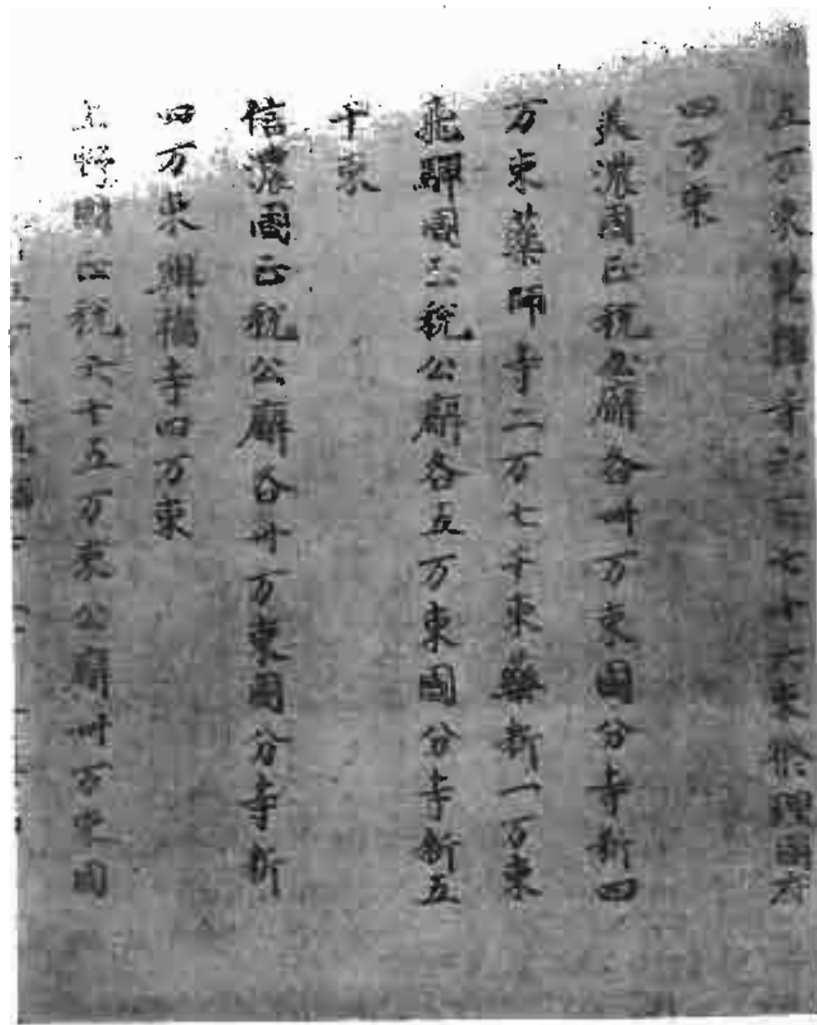 五万束梵釋寺六七十六束修理國府
四万束
美濃國正税公廨各卅万束國分寺料四
万束藥師寺二万七千束藥料一万束
飛驒國正税公廨各五万束國分寺料五
千束
信濃國正税公廨各卅万束國分寺料
四万束興福寺四万束
上野國正税六十五万束公廨卅万束國